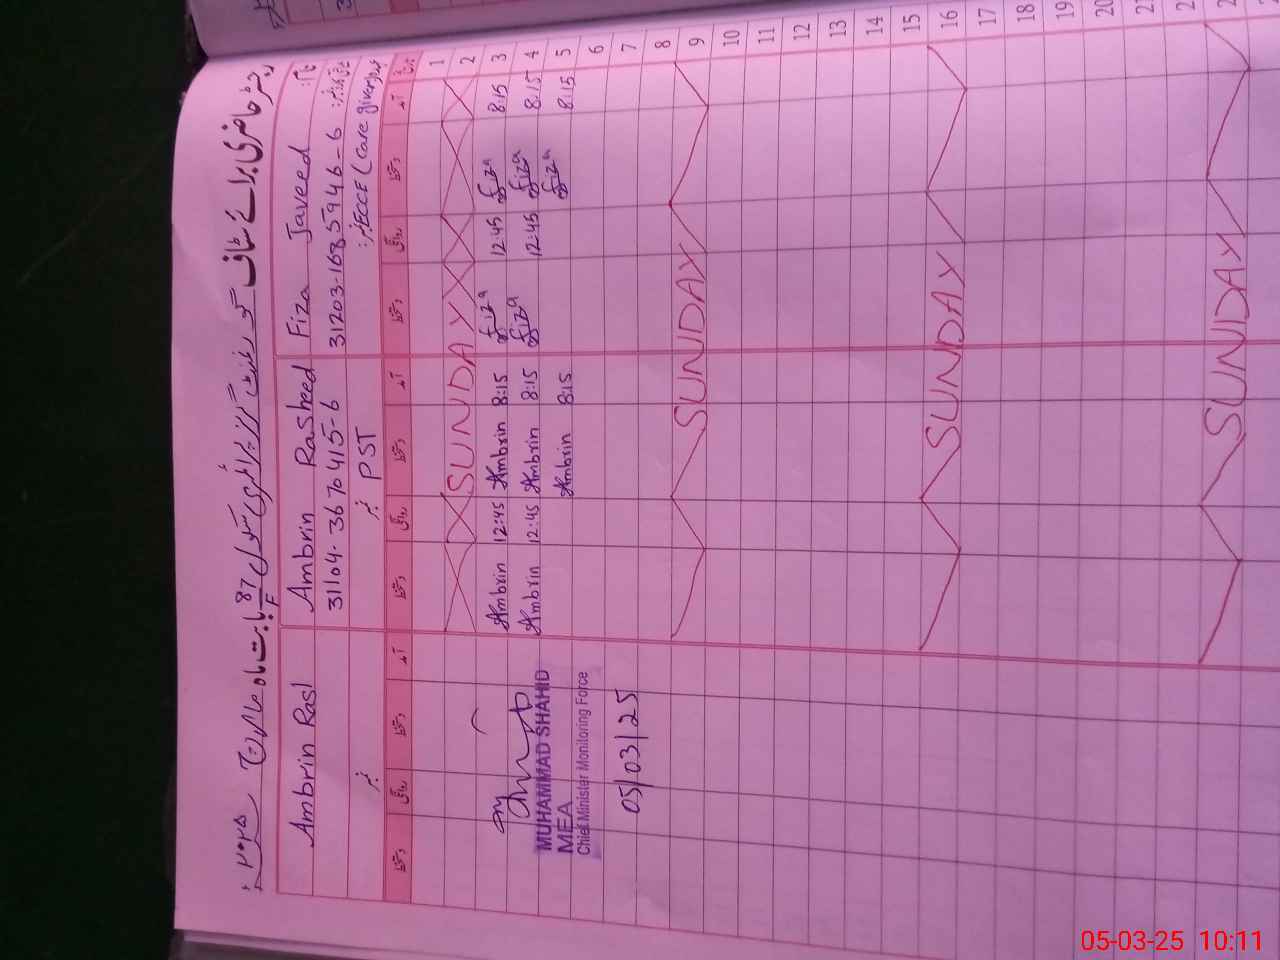 رجسٹر حاضری برائے سٹاف گورنمنٹ گرلز پرائمری سکول 87/F بابت ماہ مارچ ۲۰۲۵
نام: Fiza Javeed Ambrin Rasheed Ambrin Rasl
شناختی: 31203-1685946-6 31104-3670415-6
عہدہ: ECCE (Care giver) PST
تاریخ آمد دستخط روانگی دستخط آمد دستخط روانگی دستخط آمد دستخط روانگی دستخط
1
2 SUNDAY
3 8:15 Fiza 12:45 Fiza 8:15 Ambrin 12:45 Ambrin
4 8:15 Fiza 12:45 Fiza 8:15 Ambrin 12:45 Ambrin
5 8:15 Fiza 8:15 Ambrin
6
7
8
9 SUNDAY
10
11
12
13
14
15
16 SUNDAY
17
18
19
20
SUNDAY
MUHAMMAD SHAHID
MEA
Chief Minister Monitoring Force
05/03/25
05-03-25 10:11